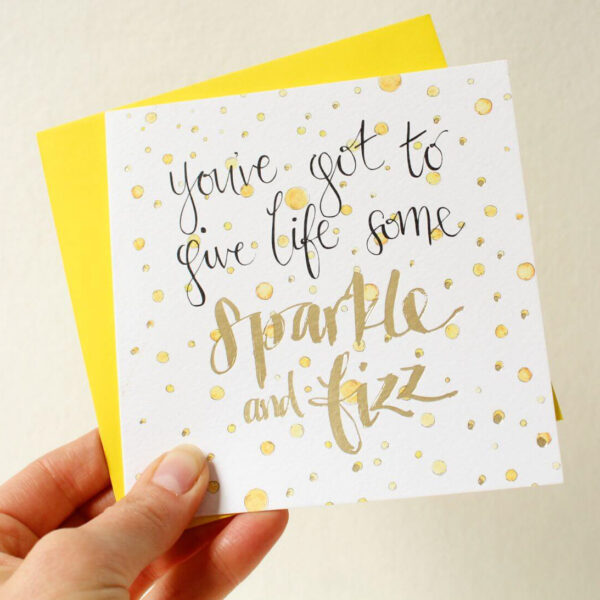 you've got to
give life some
sparkle
and fizz